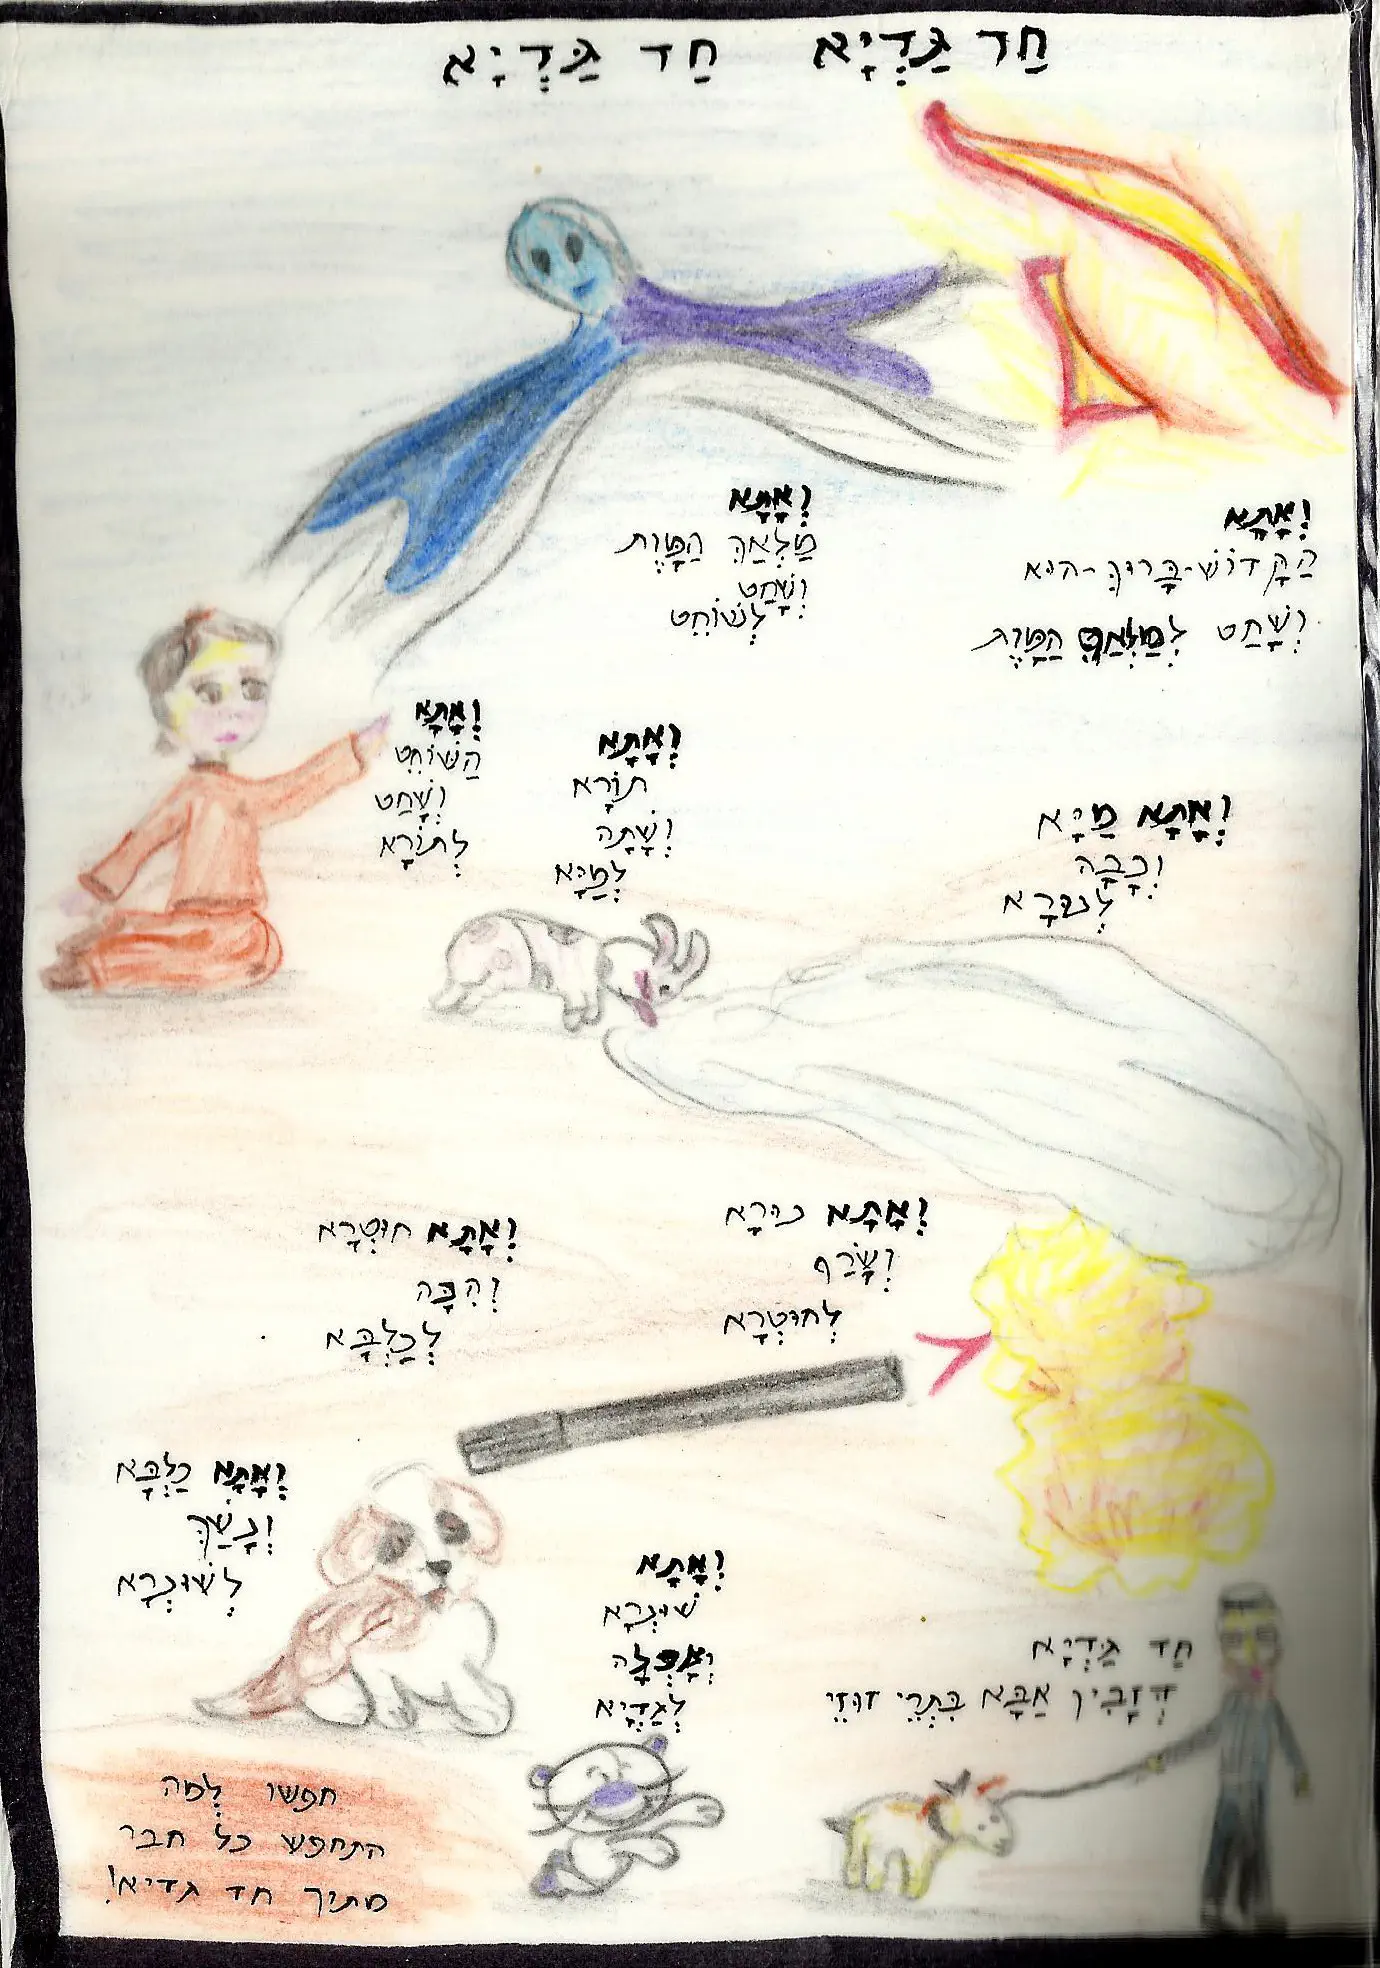 חַד גַּדְיָא חַד גַּדְיָא
וְאָתָא
הַקָּדוֹשׁ-בָּרוּךְ-הוּא
וְשָׁחַט לְמַלְאַךְ הַמָּוֶת
וְאָתָא
מַלְאַךְ הַמָּוֶת
וְשָׁחַט
לְשׁוֹחֵט
וְאָתָא
הַשּׁוֹחֵט
וְשָׁחַט
לְתוֹרָא
וְאָתָא
תוֹרָא
וְשָׁתָה
לְמַיָּא
וְאָתָא מַיָּא
וְכָבָה
לְנוּרָא
וְאָתָא נוּרָא
וְשָׂרַף
לְחוּטְרָא
וְאָתָא חוּטְרָא
וְהִכָּה
לְכַלְבָּא
וְאָתָא כַלְבָּא
וְנָשַׁךְ
לְשׁוּנְרָא
וְאָתָא
שׁוּנְרָא
וְאָכְלָה
לְגַדְיָא
חַד גַּדְיָא
דְּזַבִּין אַבָּא בִּתְרֵי זוּזֵי
חפשו לְמה
התחפש כל חבר
מתוך חד גדיא!